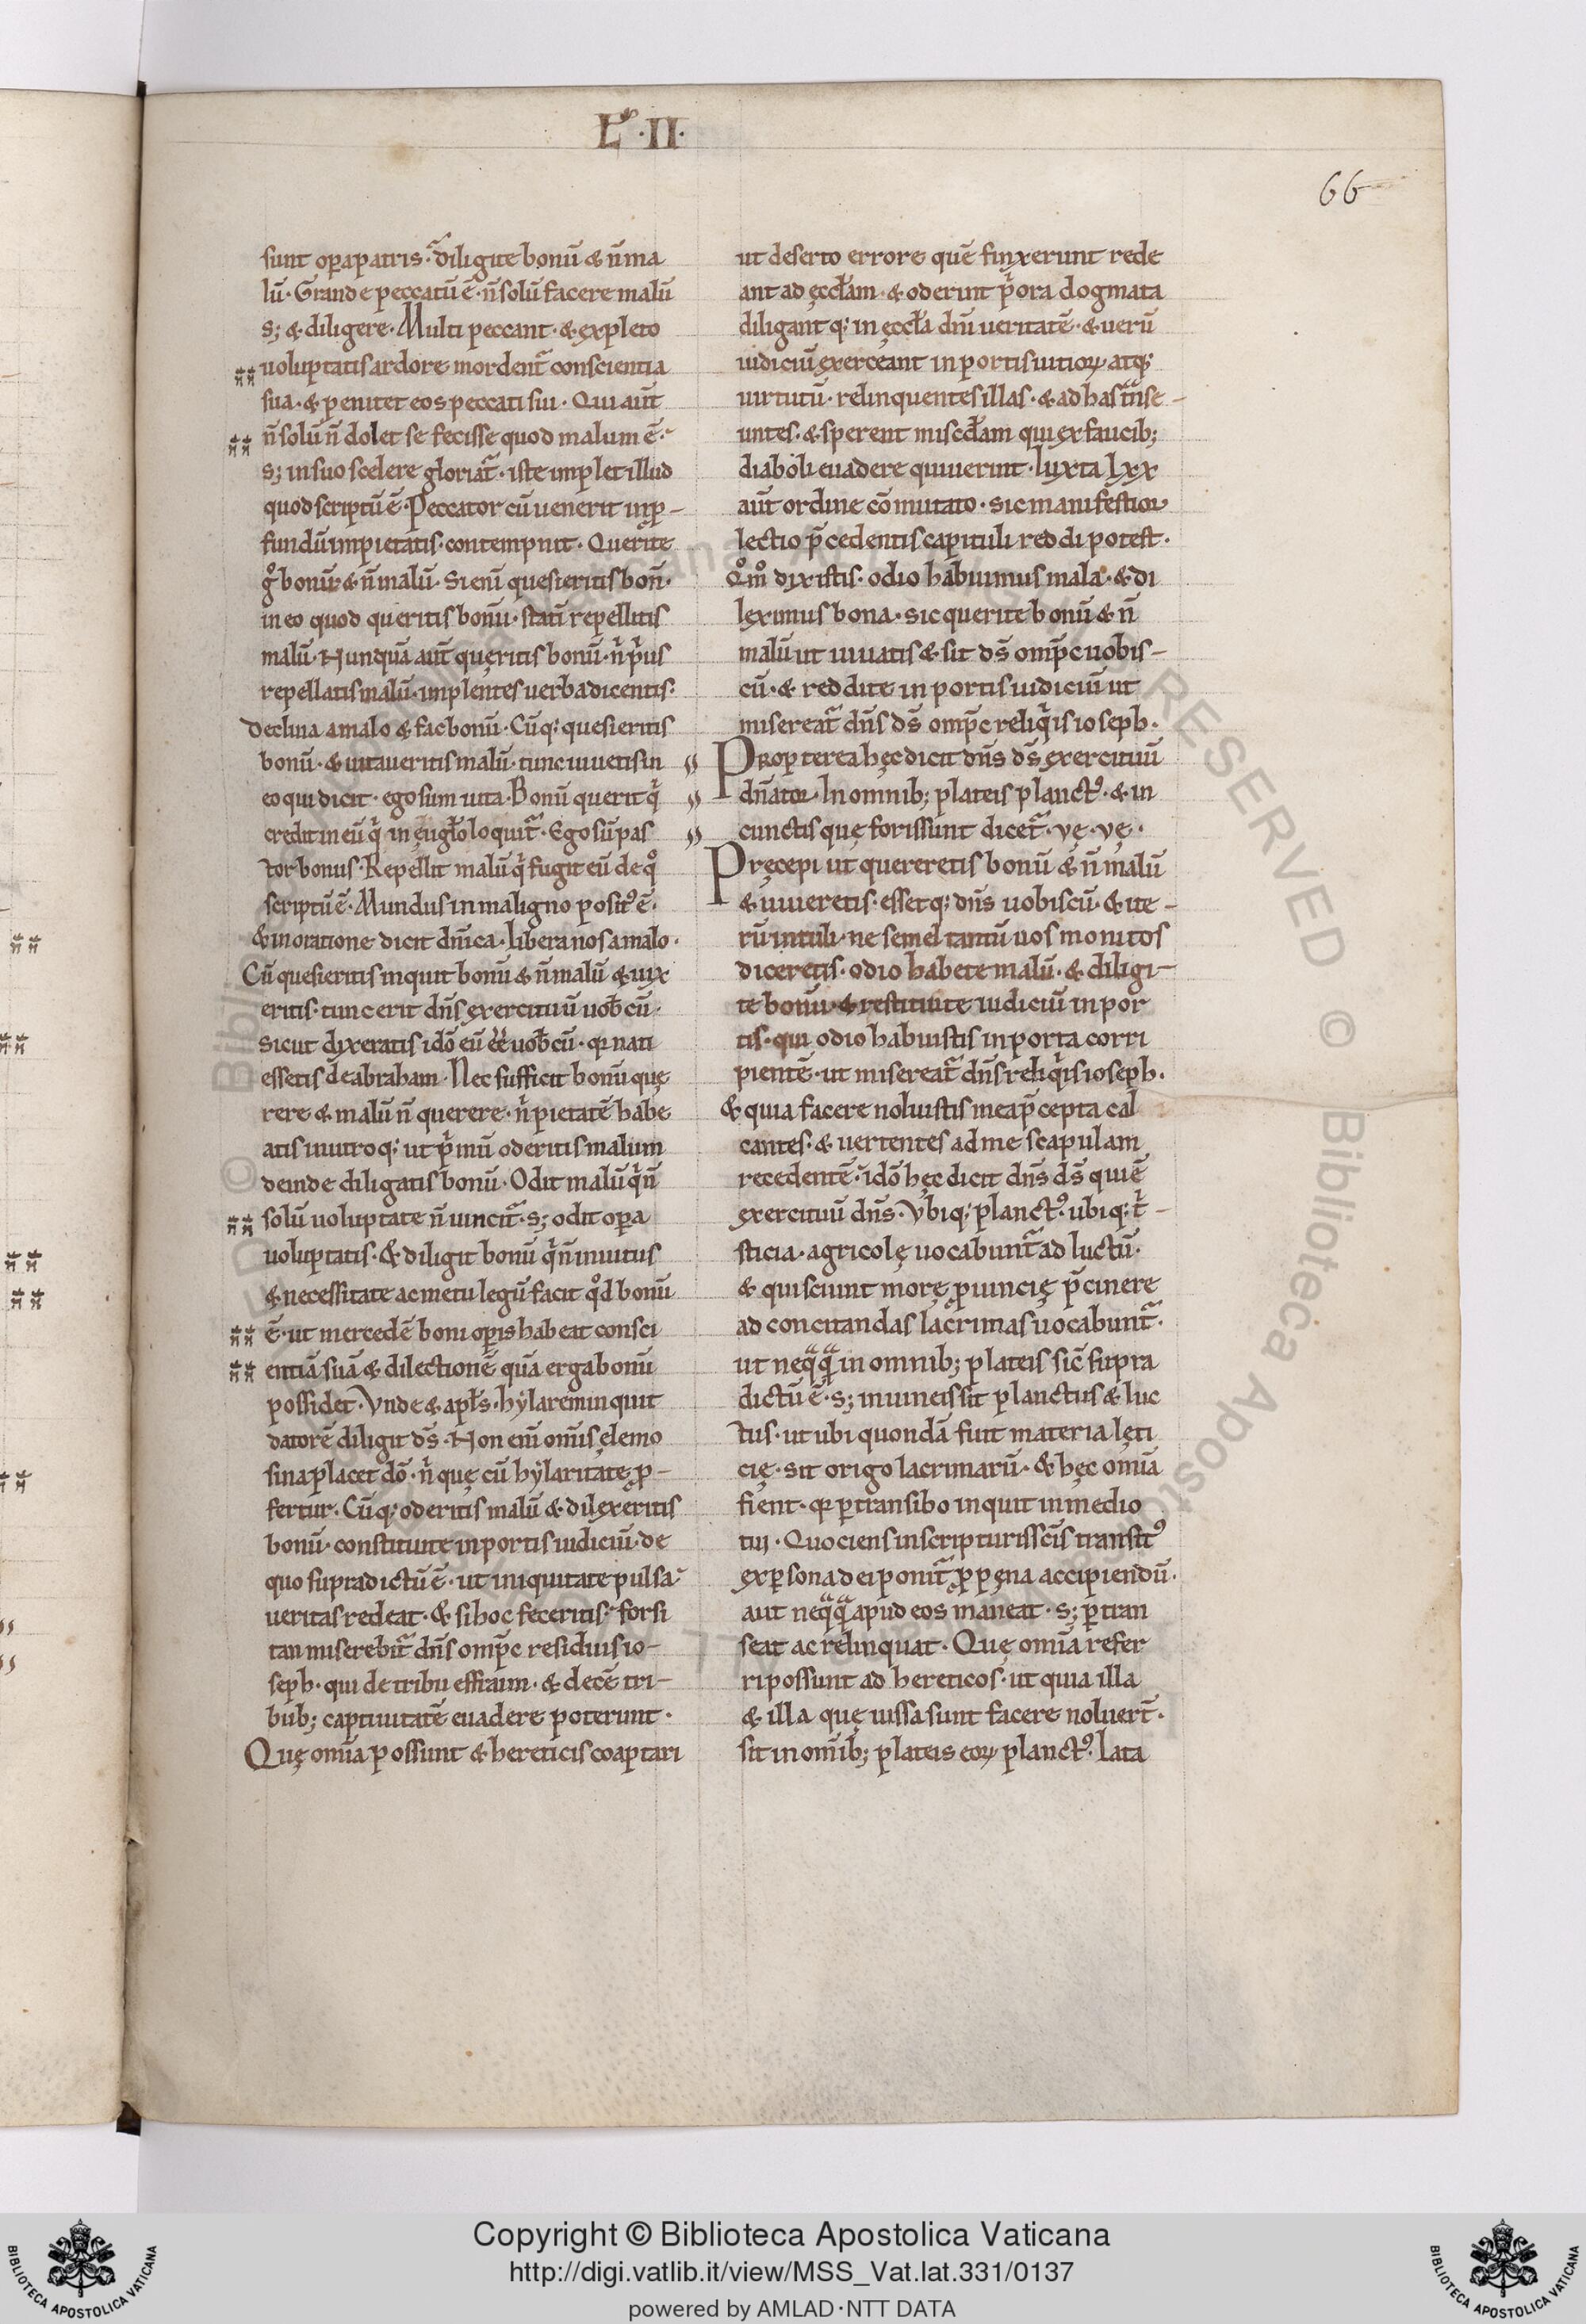 Lꝰ·II·
66
sunt oꝑa patris·̃ diligite bonū & n̄ ma
lū· Grande peccatū ē· n̄ solū facere malū
s; & diligere· Multi peccant· & expleto
uoluptatis ardore mordent᷑ conscientia
sua· & penitet eos peccati sui· Qui aūt
n̄ solū n̄ dolet se fecisse quod malum ē·
s; in suo scelere gloriat᷑· iste implet illud
quod scriptū ē· Peccator cū uenerit in ꝓ-
fundū impietatis· contempnit· Querite
g̊ bonū & n̄ malū· Si enī quesieritis bon̄·
in eo quod queritis bonū· statī repellitis
malū· Nunquā aūt quęritis bonū· n̓ p̓us
repellatis malū· implentes uerba dicentis·
Declina a malo & fac bonū· Cūq; quesieritis
bonū· & uitaueritis malū· tunc uiuetis in
eo qui dicit· ego sum uita· Bonū querit q̓
credit in eū q̓ in ęugl̄o loquit᷑· Ego sū pas
tor bonus· Repellit malū q̓ fugit eū de q̊
scriptū ē· Mundus in maligno positꝰ ē·
& in oratione dicit dn̄ica· libera nos a malo·
Cū quesieritis inquit bonū & n̄ malū & uix
eritis· tunc erit dn̄s exercituū uob̄cū·
sicut dixeratis idō eū ēē uob̄cū· qꝛ nati
essetis de abraham· Nec sufficit bonū quę
rere & malū n̄ querere· n̓ pietatē habe
atis in utroq; ut p̓mū oderitis malum
deinde diligatis bonū· Odit malū q̓ n̄
solū uoluptate n̄ uincit᷑· s; odit oꝑa
uoluptatis· & diligit bonū q̓ n̄ inuitus
& necessitate ac metu legū facit qd̊ bonū
ē· ut mercedē boni oꝑis habeat consci
entiā suā & dilectionē quā erga bonū
possidet· Vnde & apl̄s· hẏlarem inquit
datorē diligit ds̄· Non enī om̄is elemo
sina placet dō· n̓ quę cū hẏlaritate ꝓ-
fertur· Cūq; oderitis malū & dilexeritis
bonū· constituite in portis iudiciū· de
quo supra dictū ē· ut iniquitate pulsa
ueritas redeat· & si hoc feceritis· forsi
tan miserebit᷑ dn̄s omp̄c residuis io-
seph· qui de tribu effraim· & decē tri-
bub; captiuitatē euadere poterunt·
Quę om̄ia possunt & hereticis coaptari
ut deserto errore quē finxerunt rede
ant ad ęccl̄am· & oderint p̓ora dogmata
diligant q; in ęccl̄a dn̄i ueritatē· & uerū
iudiciū exerceant in portis uitioꝝ atq;
uirtutū· relinquentes illas· & ad has t᷑nse-
untes· & sperent mīscd̄am qui ex faucib;
diaboli euadere quiuerint· Iuxta lxx
aūt ordine cōmutato· sic manifestior
lectio p̄cedentis capituli reddi potest·
Q̊m̊ dixistis· odio habuimus mala· & di
leximus bona· sic querite bonū & n̄
malū ut uiuatis & sit ds̄ omp̄c uobis-
cū· & reddite in portis iudiciū ut
misereat᷑ dn̄s ds̄ omp̄c reliq̓is ioseph·
Propterea hęc dicit dn̄s ds̄ exercituū
dn̄ator· In omnib; plateis planctꝰ· & in
cunctis quę foris sunt dicet᷑· vę· vę·
Pręcepi ut quereretis bonū & n̄ malū
& uiueretis· essetq; dn̄s uobiscū· & ite-
rū intuli· ne semel tantū uos monitos
diceretis· odio habete malū· & diligi-
te bonū· & restituite iudiciū in por
tis· qui odio habuistis in porta corri
pientē· ut misereat᷑ dn̄s reliq̓is ioseph·
& quia facere noluistis mea p̄cepta cal
cantes· & uertentes ad me scapulam
recedentē· idō hęc dicit dn̄s ds̄ qui ē
exercituū dn̄s· Vbiq; planctꝰ· ubiq; t̓-
sticia· agricolę uocabunt᷑ ad luctū·
& qui sciunt morę ꝓuincię p̄cinere
ad concitandas lacrimas uocabunt᷑·
ut neqᷓqᷓ in omnib; plateis sic̄ supra
dictū ē· s; in uineis sit planctus & luc
tus· ut ubi quondā fuit materia lęti
cię· sit origo lacrimarū· & hęc om̄ia
fient· qꝛ ꝑtransibo inquit in medio
tui· Quociens in scripturis sc̄is transitꝰ
ex ꝑsona dei ponit᷑ ꝓ pęna accipiendū·
aut neqᷓqᷓ apud eos maneat· s; ꝑtran
seat ac relinquat· Quę om̄ia refer
ri possunt ad hereticos· ut quia illa
& illa quę iussa sunt facere noluer̄t·
sit in om̄ib; plateis eoꝝ planctꝰ· Lata
Copyright © Biblioteca Apostolica Vaticana
http://digi.vatlib.it/view/MSS_Vat.lat.331/0137
powered by AMLAD·NTT DATA
BIBLIOTECA APOSTOLICA VATICANA
BIBLIOTECA APOSTOLICA VATICANA